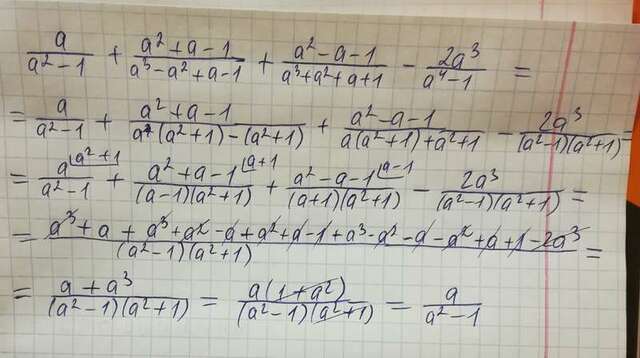 a/(a²-1) + (a²+a-1)/(a³-a²+a-1) + (a²-a-1)/(a³+a²+a+1) - 2a³/(a⁴-1) =
= a/(a²-1) + (a²+a-1)/(a²(a²+1)-(a²+1)) + (a²-a-1)/(a(a²+1)+a²+1) - 2a³/((a²-1)(a²+1)) =
= a⌊a²+1/(a²-1) + (a²+a-1)⌊a+1/((a-1)(a²+1)) + (a²-a-1)⌊a-1/((a+1)(a²+1)) - 2a³/((a²-1)(a²+1)) =
= (a³+a+a³+a²-a+a²+a-1+a³-a²-a-a²+a+1-2a³)/((a²-1)(a²+1)) =
= (a+a³)/((a²-1)(a²+1)) = a(1+a²)/((a²-1)(a²+1)) = a/(a²-1)